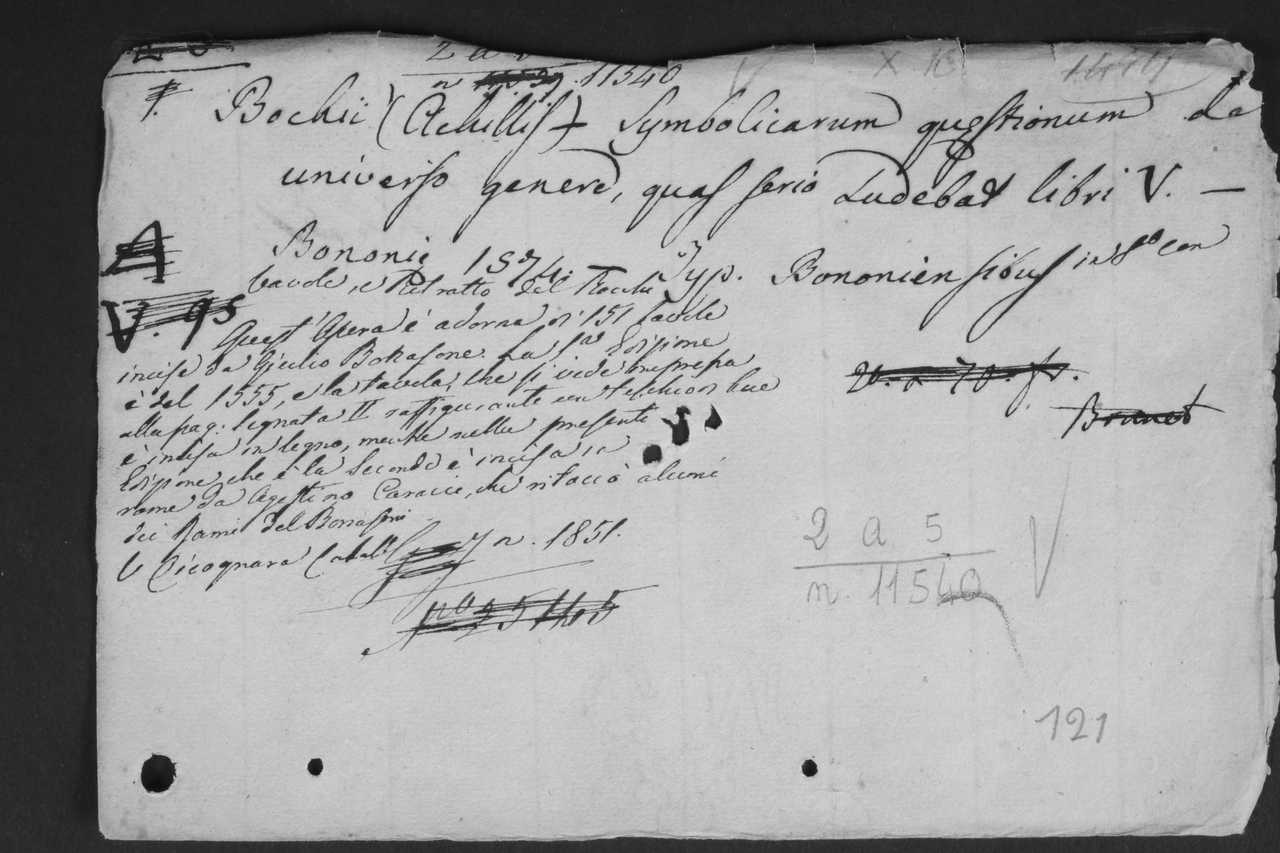 2 a 5
n 11540
Bochii (Achillis) Symbolicarum quęstionum de
universo genere, quas serio Ludebat libri V. —
A
Bononię 1574. Typ. Bononiensibus in 8º con
tavole, e Ritratto del Bochi
V. 95
Quest'Opera è adorna di 151 tavole
incise da Giulio Bonasone. La 1ª Edizione
è del 1555, e la tavola, che si vede impressa
alla pag: segnata II raffigurante un bue
è incisa in legno, mentre nella presente
Edizione, che è la seconda è incisa in
rame da Agostino Caracci, che ritoccò alcuni
dei Rami del Bonasoni
V Cicognara Catal. n. 1851.
20. a 70. fr.
Brunet
nº 25145
2 a 5
n. 11540
121